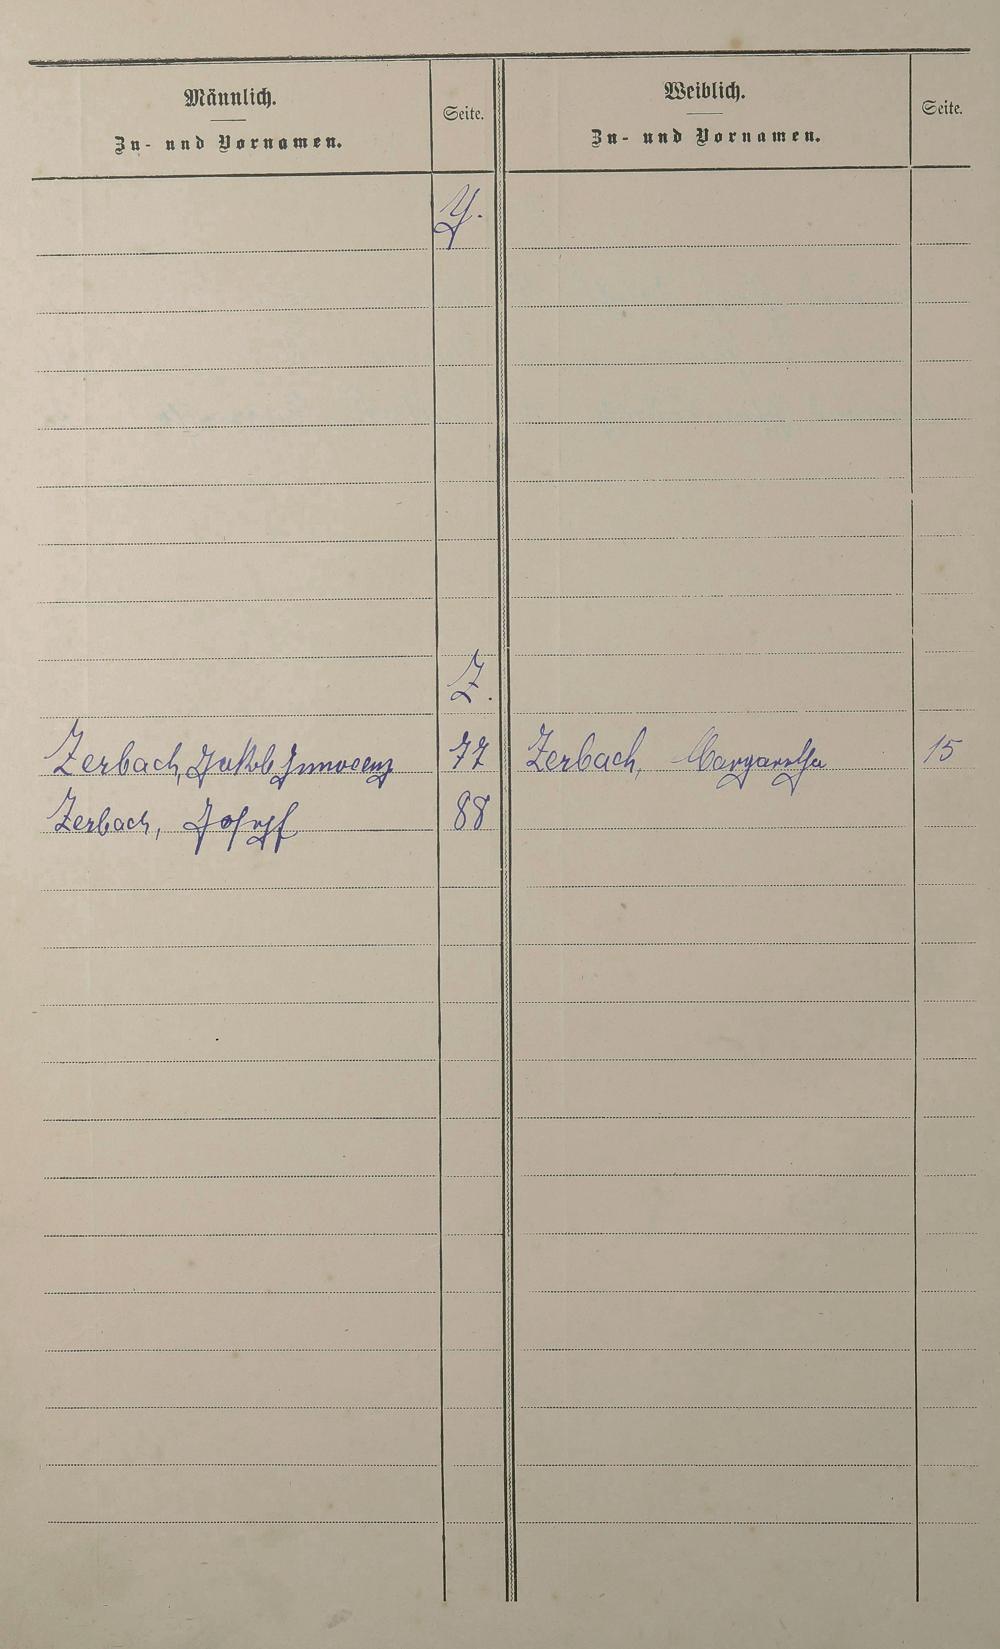 Männlich.
Zu- und Vornamen.
Seite.
Weiblich.
Zu- und Vornamen.
Seite.
Y.
Z.
Zerbach, Jakob Innocenz 77 Zerbach, Margaretha 15
Zerbach, Joseph 88